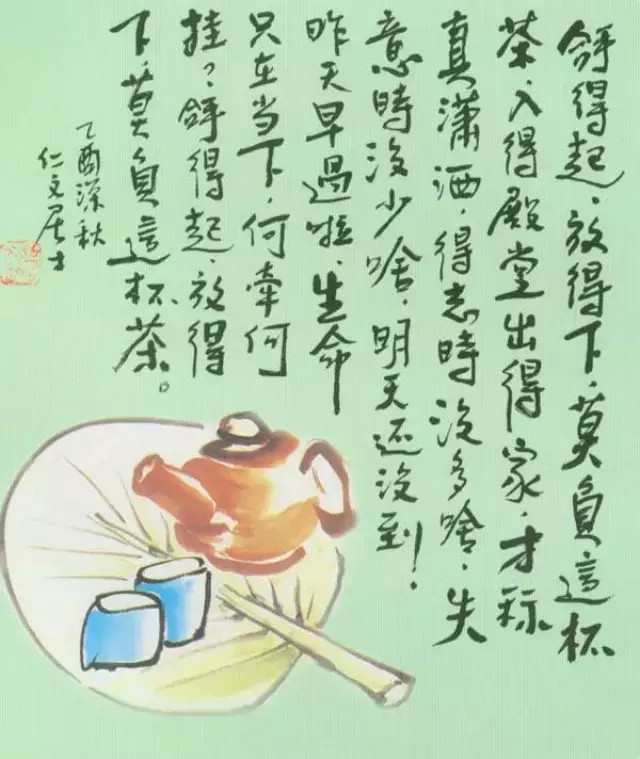 拿得起、放得下、莫負這杯
茶、入得殿堂出得家、才称
真瀟洒、得志時没多啥、失
意時没少啥、明天还没到！
昨天早過啦、生命
只在当下、何牽何
挂？拿得起、放得
下、莫負這杯茶。
乙酉深秋
仁文居士